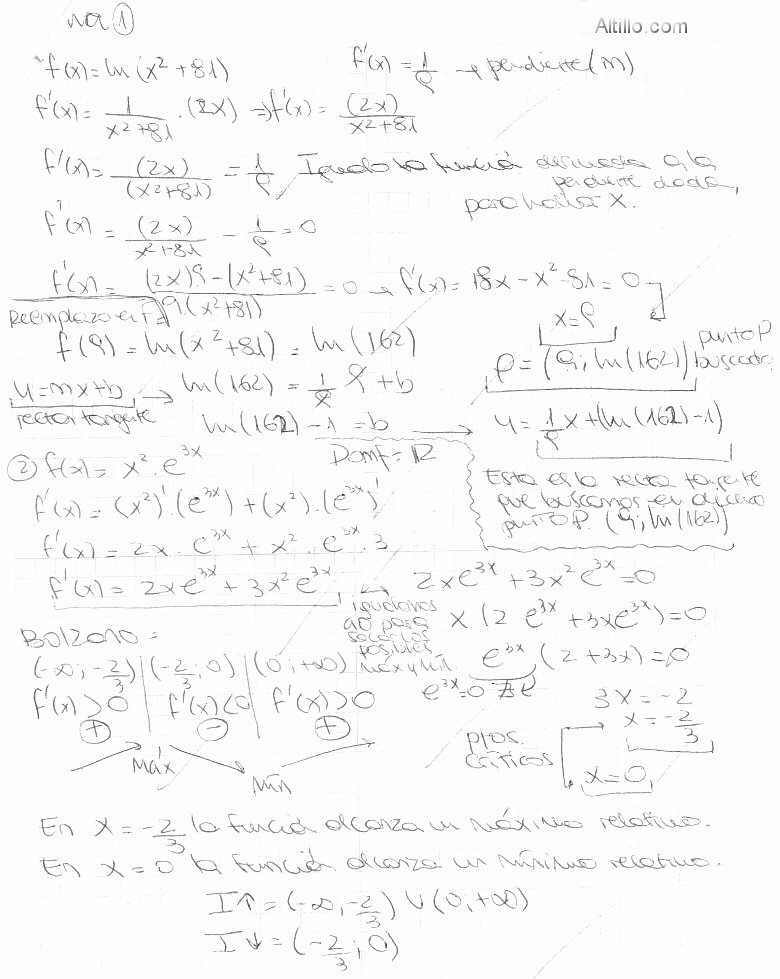 na ①
Altillo.com
f(x) = ln(x² + 81)
f'(x) = 1/9 → pendiente (m)
f'(x) = 1/(x²+81) . (2x) ⇒ f'(x) = (2x)/(x²+81)
f'(x) = (2x)/(x²+81) = 1/9 Igualo la función derivada a la
pendiente dada,
para hallar X.
f'(x) = (2x)/(x²+81) - 1/9 = 0
f'(x) = ((2x)9 - (x²+81))/(9(x²+81)) = 0 → f'(x) = 18x - x² - 81 = 0
x = 9
Reemplazo en f
f(9) = ln(x² + 81) = ln(162)
P = (9; ln(162)) punto P
buscado
y = mx + b → ln(162) = 1/9 9 + b
recta tangente
ln(162) - 1 = b → y = 1/9 x + (ln(162) - 1)
Esta es la recta tangente
que buscamos en
punto P (9; ln(162))
② f(x) = x² . e^3x
Domf = R
f'(x) = (x²)' . (e^3x) + (x²) . (e^3x)'
f'(x) = 2x . e^3x + x² . e^3x . 3
f'(x) = 2xe^3x + 3x²e^3x
igualamos
a 0 para
sacar los
posibles
máx y mín
2xe^3x + 3x²e^3x = 0
x . (2 e^3x + 3xe^3x) = 0
e^3x (2 + 3x) = 0
e^3x = 0 ∄
3x = -2
x = -2/3
x = 0
ptos.
críticos
Bolzano =
(-∞; -2/3) | (-2/3; 0) | (0; +∞)
f'(x) > 0 | f'(x) < 0 | f'(x) > 0
+ - +
Máx Mín
En x = -2/3 la función alcanza un máximo relativo.
En x = 0 la función alcanza un mínimo relativo.
I↑ = (-∞, -2/3) ∪ (0, +∞)
I↓ = (-2/3; 0)